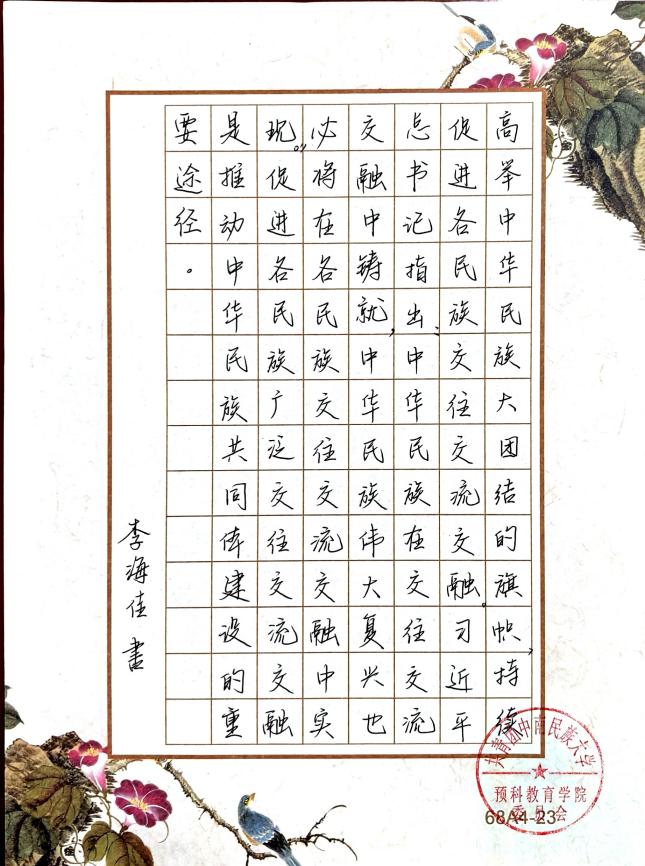 高举中华民族大团结的旗帜，持续
促进各民族交往交流交融。习近平
总书记指出：中华民族在交往交流
交融中铸就，中华民族伟大复兴也
必将在各民族交往交流交融中实
现。，促进各民族广泛交往交流交融
是推动中华民族共同体建设的重
要途径。
李海佳书
共青团中南民族大学
预科教育学院
委员会
68A4-23